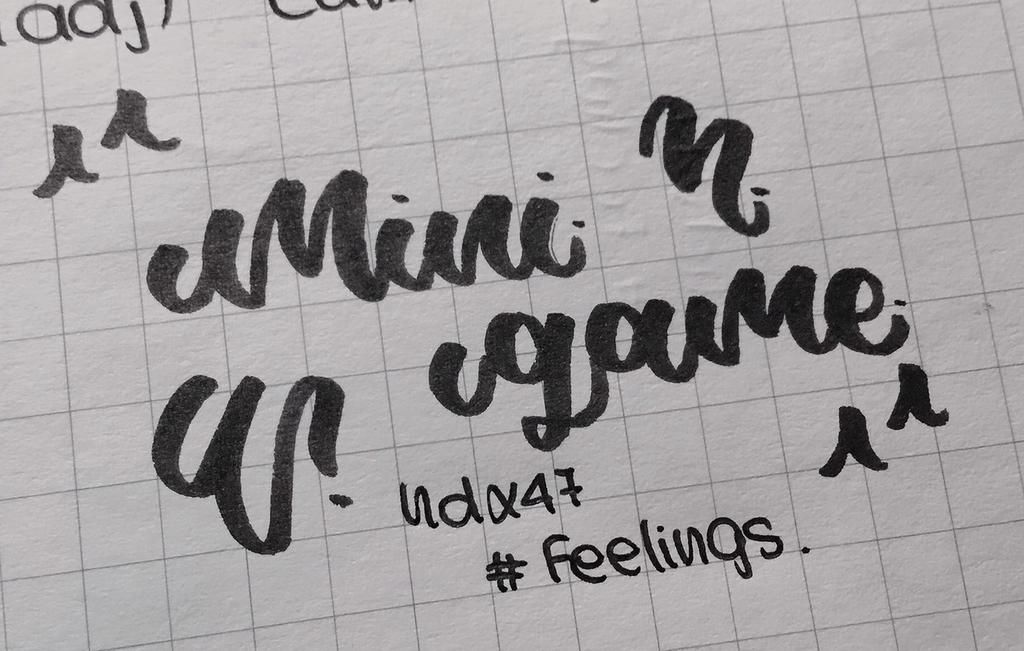 adj)
Mini
game
ndx47
# Feelings.